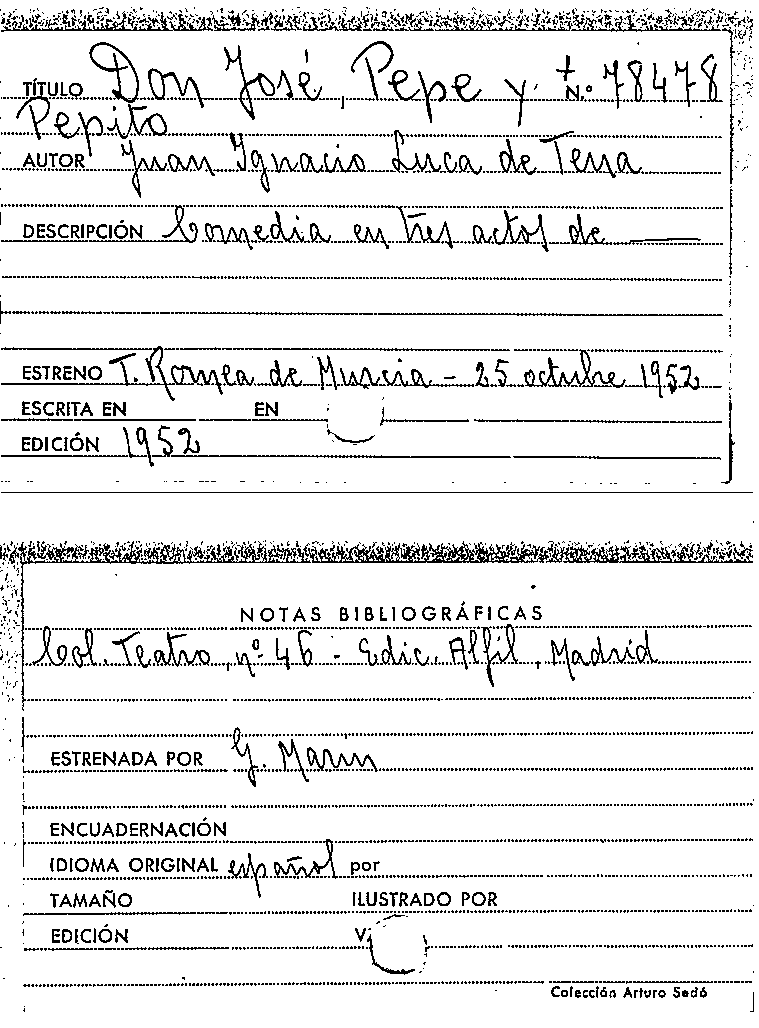 TÍTULO Don José, Pepe y t N.º 78478
Pepito
AUTOR Juan Ignacio Luca de Tena
DESCRIPCIÓN Comedia en tres actos de ——
ESTRENO T. Romea de Murcia - 25 octubre 1952
ESCRITA EN EN
EDICIÓN 1952
NOTAS BIBLIOGRÁFICAS
Col. Teatro, nº 46 - Edic. Alfil, Madrid
ESTRENADA POR G. Marín
ENCUADERNACIÓN
IDIOMA ORIGINAL español por
TAMAÑO ILUSTRADO POR
EDICIÓN
Colección Arturo Sedó